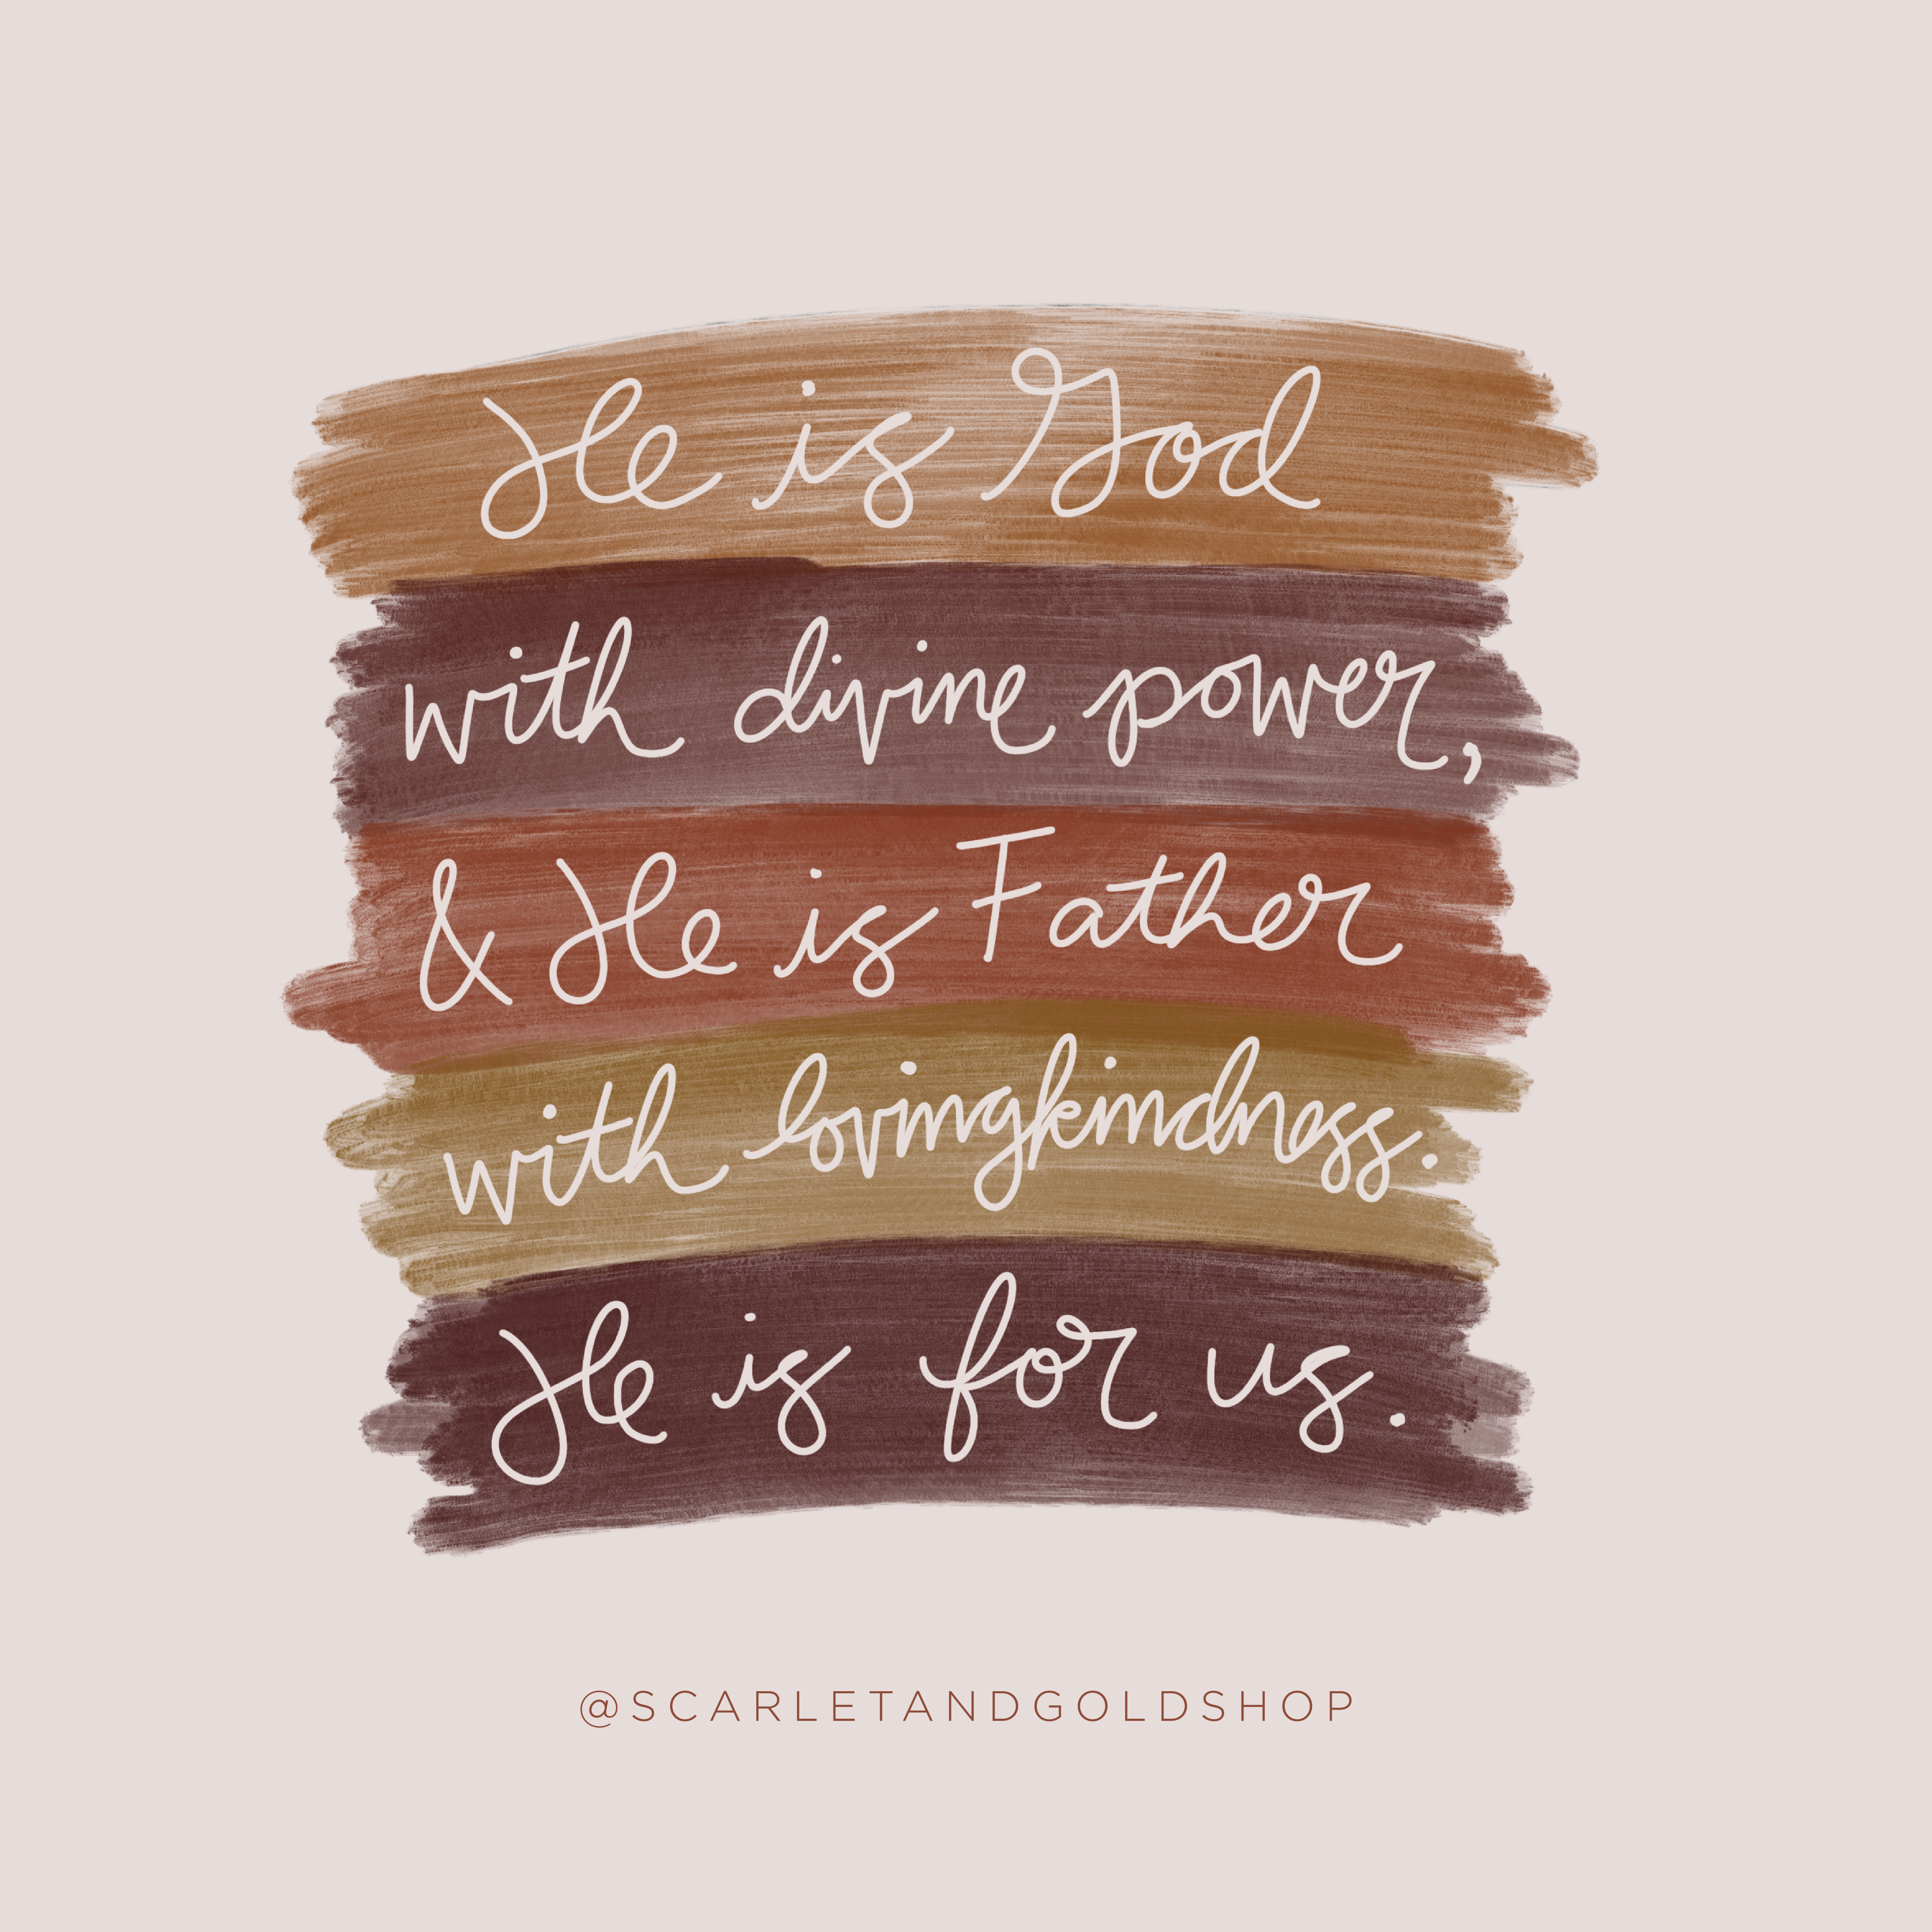 He is God
with divine power,
& He is Father
with lovingkindness.
He is for us.
@SCARLETANDGOLDSHOP